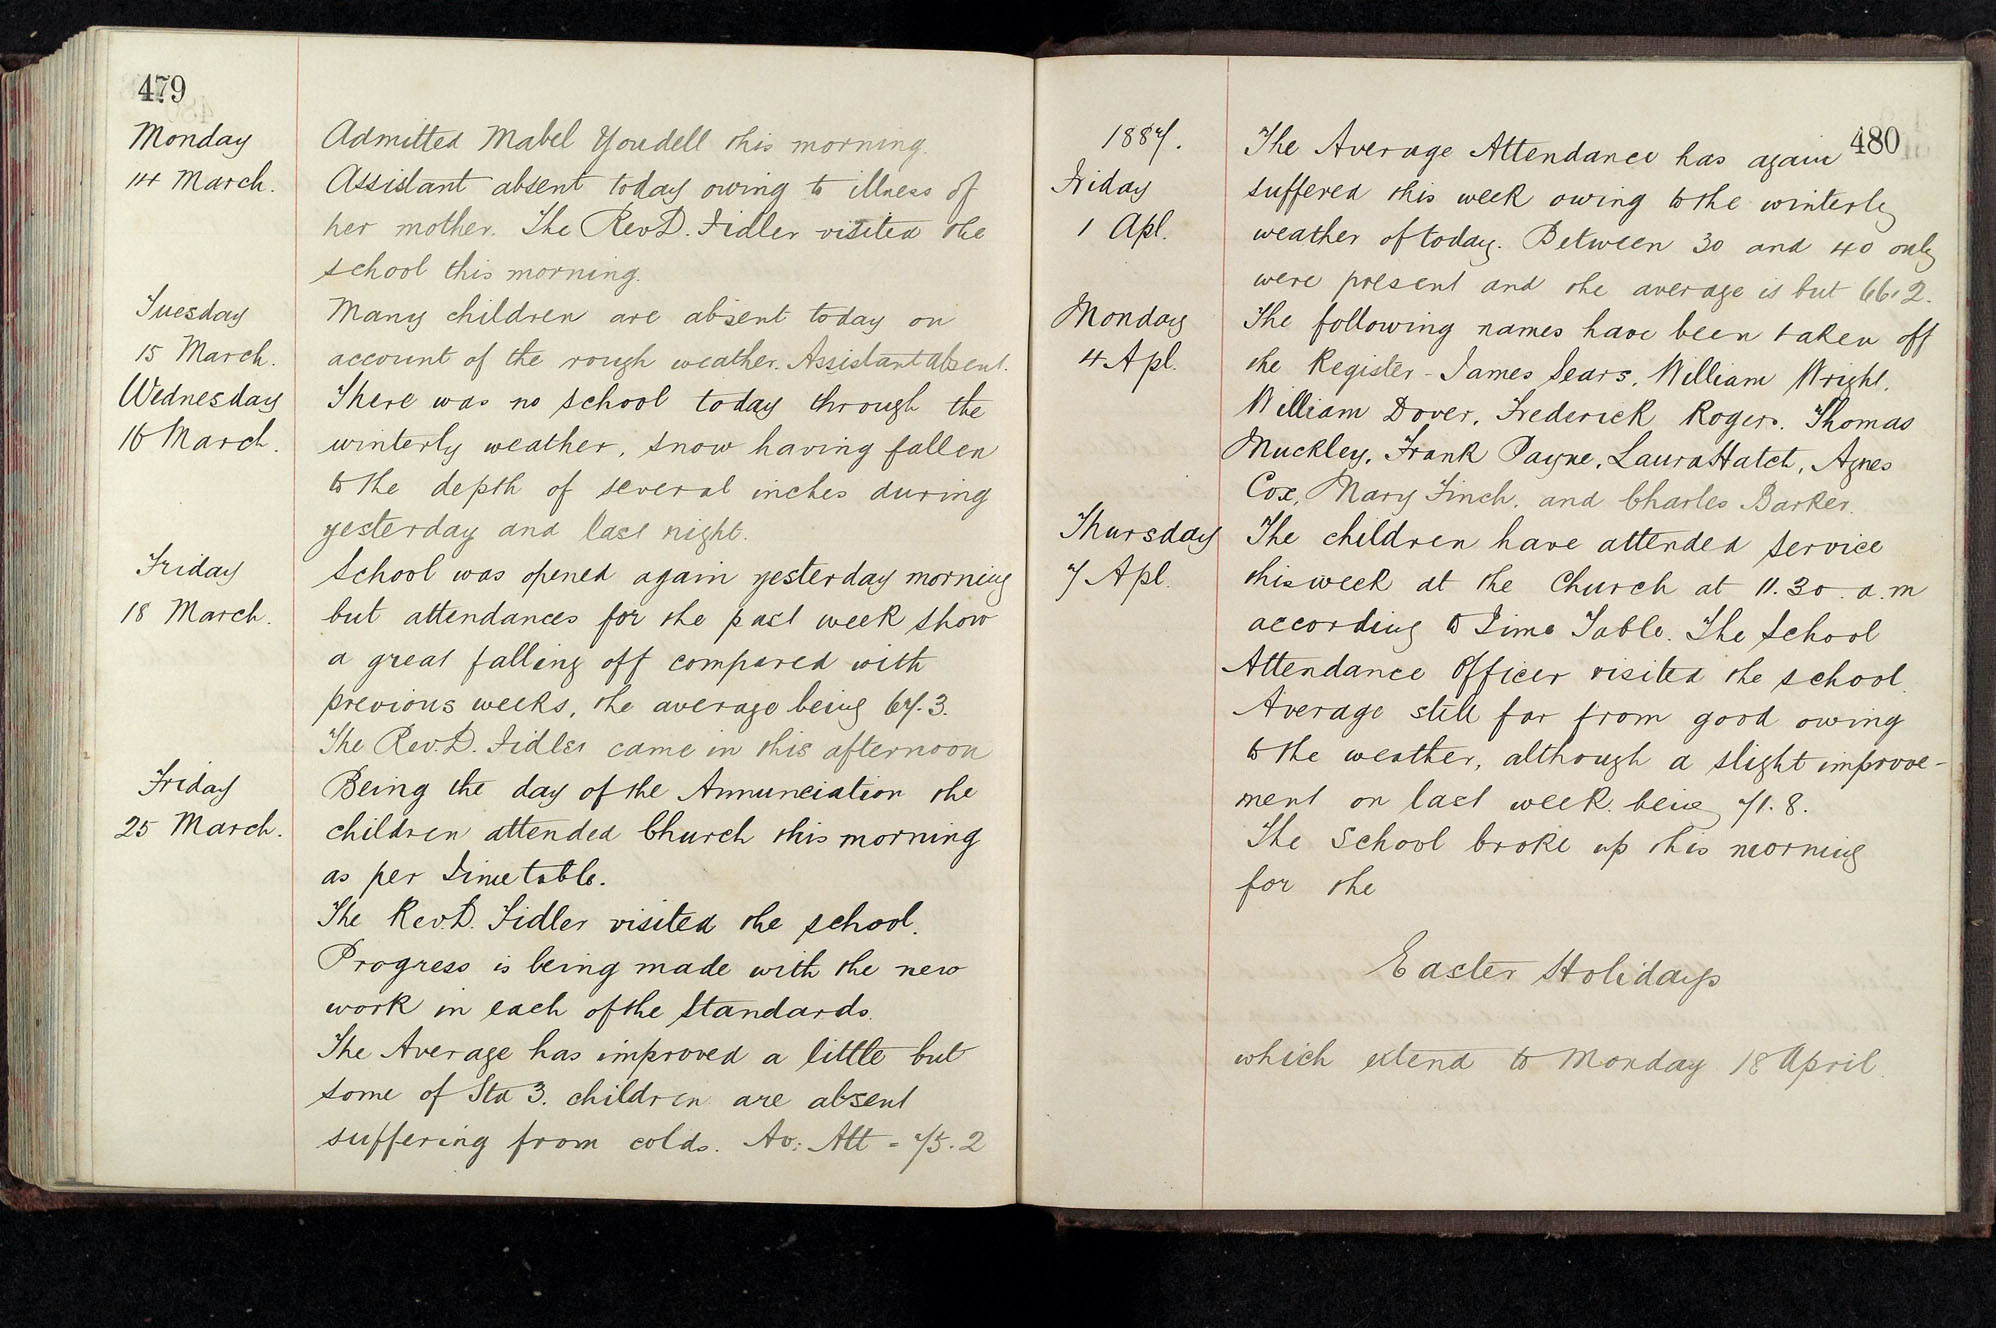 479
Monday
14 March.
Admitted Mabel Youdell this morning.
Assistant absent today owing to illness of
her mother. The Rev.D. Fidler visited the
school this morning.
Tuesday
15 March.
Many children are absent today on
account of the rough weather. Assistant absent.
Wednesday
16 March.
There was no school today through the
winterly weather, snow having fallen
to the depth of several inches during
yesterday and last night.
Friday
18 March.
School was opened again yesterday morning
but attendances for the past week show
a great falling off compared with
previous weeks, the average being 67.3.
The Rev.D. Fidler came in this afternoon
Friday
25 March.
Being the day of the Annunciation the
children attended Church this morning
as per Time table.
The Rev.D. Fidler visited the school.
Progress is being made with the new
work in each of the Standards.
The Average has improved a little but
some of Std 3. children are absent
suffering from colds. Av: Att = 75.2
480
1887.
Friday
1 Apl.
The Average Attendance has again
suffered this week owing to the winterly
weather of today. Between 30 and 40 only
were present and the average is but 66.2.
Monday
4 Apl.
The following names have been taken off
the Register - James Sears, William Wright,
William Dover, Frederick Rogers, Thomas
Muckley, Frank Payne, Laura Hatch, Agnes
Cox, Mary Finch, and Charles Barker.
Thursday
7 Apl.
The children have attended service
this week at the Church at 11.30. a.m
according to Time Table. The School
Attendance Officer visited the school.
Average still far from good owing
to the weather, although a slight improve-
ment on last week being 71.8.
The School broke up this morning
for the
Easter Holidays
which extend to Monday 18 April.